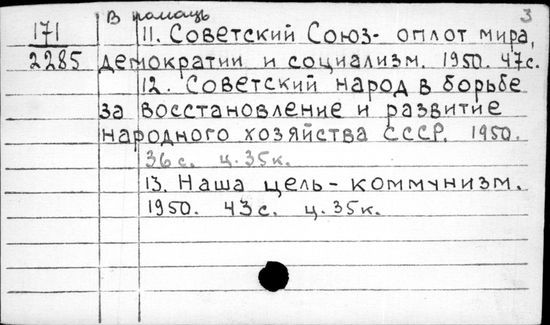 В помощь 3
171 11. Советский Союз- оплот мира,
2285 демократии и социализм. 1950. 47с.
12. Советский народ в борьбе
за восстановление и развитие
народного хозяйства СССР. 1950.
36с. ц.35к.
13. Наша цель - коммунизм.
1950. 43с. ц.35к.